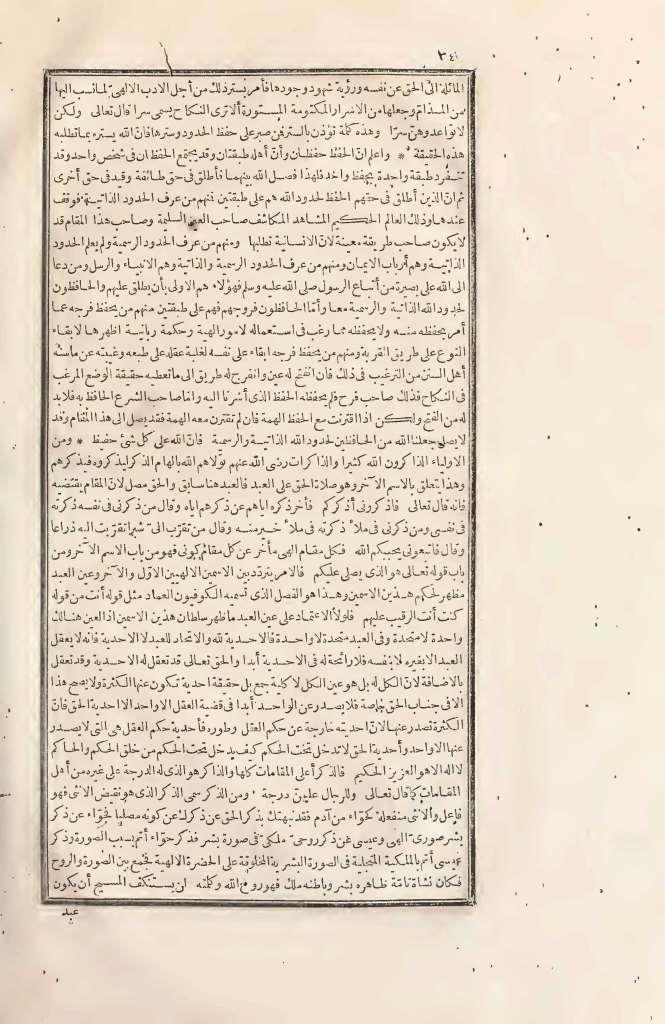 ٣٤١
المائلة الى الحق عن نفسه ورؤية شهود وجودها فأمر بستر ذلك من أجل الادب الالهى لما نسب اليها
من المذام وجعلها من الاسرار المكتومة المستورة ألا ترى النكاح يسمى سرا قال تعالى ولكن
لا تواعدوهن سرا وهذه كلمة تؤذن بالستر فمن صبر على حفظ الحدود وسترها فان الله يستره بما تطلبه
هذه الحقيقة * واعلم ان الحفظ حفظان وأن أهله طبقتان وقد يجتمع الحفظان فى شخص واحد وقد
تنفرد طبقة واحدة بحفظ واحد فلهذا فصل الله بينهما فأطلق فى حق طائفة وقيد فى حق أخرى
ثم ان الذين أطلق فى حقهم الحفظ لحدود الله هم على طبقتين فمنهم من عرف الحدود الذاتية فوقف
عندها وذلك العالم الحكيم المشاهد المكاشف صاحب العين السليمة وصاحب هذا المقام قد
لا يكون صاحب طريقة معينة لان الانسانية تطلبها ومنهم من عرف الحدود الرسمية ولم يعلم الحدود
الذاتية وهم أرباب الايمان ومنهم من عرف الحدود الرسمية والذاتية وهم الانبياء والرسل ومن دعا
الى الله على بصيرة من أتباع الرسول صلى الله عليه وسلم فهؤلاء هم الاولى بأن يطلق عليهم والحافظون
لحدود الله الذاتية والرسمية معا وأما الحافظون فروجهم فهم على طبقتين منهم من يحفظ فرجه عما
أمر بحفظه منه ولا يحفظه مما رغب فى استعماله لامور الهية وحكمة ربانية اظهرها لابقاء
النوع على طريق القربة ومنهم من يحفظ فرجه ابقاء على نفسه لغلبة عقله على طبعه وغيبته عن ماسنه
أهل السنن من الترغيب فى ذلك فان انفتح له عين وانفرج له طريق الى ما تعطيه حقيقة الوضع المرغب
فى النكاح فذلك صاحب فرح فلم يحفظه الحفظ الذى أشرنا اليه وأما صاحب الشرع الحافظ به فلا بد
له من الفتح ولكن اذا اقترنت مع الحفظ الهمة فان لم تقترن معه الهمة فقد يصل الى هذا المقام وقد
لا يصل جعلنا الله من الحافظين لحدود الله الذاتية والرسمية فان الله على كل شئ حفيظ * ومن
الاولياء الذاكرون الله كثيرا والذاكرات رضى الله عنهم تولاهم الله بالهام الذكر ليذكروه فيذكرهم
وهذا يتعلق بالاسم الآخر وهو صلاة الحق على العبد فالعبد هنا سابق والحق مصل لان المقام يقتضيه
فانه قال تعالى فاذكرونى أذكركم فأخر ذكره اياهم عن ذكرهم اياه وقال من ذكرنى فى نفسه ذكرته
فى نفسى ومن ذكرنى فى ملأ ذكرته فى ملأ خير منه وقال من تقرب الى شبرا تقربت اليه ذراعا
وقال فاتبعونى يحببكم الله فكل مقام الهى متأخر عن كل مقام كونى فهو من باب الاسم الآخر ومن
باب قوله تعالى هو الذى يصلى عليكم فالامر يتردد بين الاسمين الالهيين الاول والآخر وعين العبد
مظهر لحكم هذين الاسمين وهذا هو الفصل الذى تسميه الكوفيون العماد مثل قوله أنت من قوله
كنت أنت الرقيب عليهم فلولا الاعتماد على عين العبد ما ظهر سلطان هذين الاسمين اذ العين هنالك
واحدة لا متحدة وفى العبد متحدة لا واحدة فالاحدية لله والاتحاد للعبد لا الاحدية فانه لا يعقل
العبد الا بغيره لا بنفسه فلا رائحة له فى الاحدية أبدا والحق تعالى قد تعقل له الاحدية وقد تعقل
بالاضافة لان الكل له بل هو عين الكل لا كلية جمع بل حقيقة احدية تكون عنها الكثرة ولا يصح هذا
الا فى جناب الحق خاصة فلا يصدر عن الواحد أبدا فى قضية العقل الا واحد الا احدية الحق فان
الكثرة تصدر عنها لان احديته خارجة عن حكم العقل وطوره فأحدية حكم العقل هى التى لا يصدر
عنها الا واحد وأحدية الحق لا تدخل تحت الحكم كيف يدخل تحت الحكم من خلق الحكم والحاكم
لا اله الا هو العزيز الحكيم فالذكر أعلى المقامات كلها والذاكر هو الذى له الدرجة على غيره من أهل
المقامات كما قال تعالى وللرجال عليهن درجة ومن الذكر سمى الذكر الذى هو نقيض الانثى فهو
فاعل والانثى منفعلة كحواء من آدم فقد نبهتك بذكر الحق عن ذكرك عن كونه مصليا فحواء عن ذكر
بشر صورى الهى وعيسى عن ذكر روحى ملكى فى صورة بشر فذكر حواء أتم بسبب الصورة وذكر
عيسى أتم بالملكية المتجلية فى الصورة البشرية المخلوقة على الحضرة الالهية فجمع بين الصورة والروح
فكان نشأة تامة ظاهره بشر وباطنه ملك فهو روح الله وكلمته ان يستنكف المسيح أن يكون
عبد